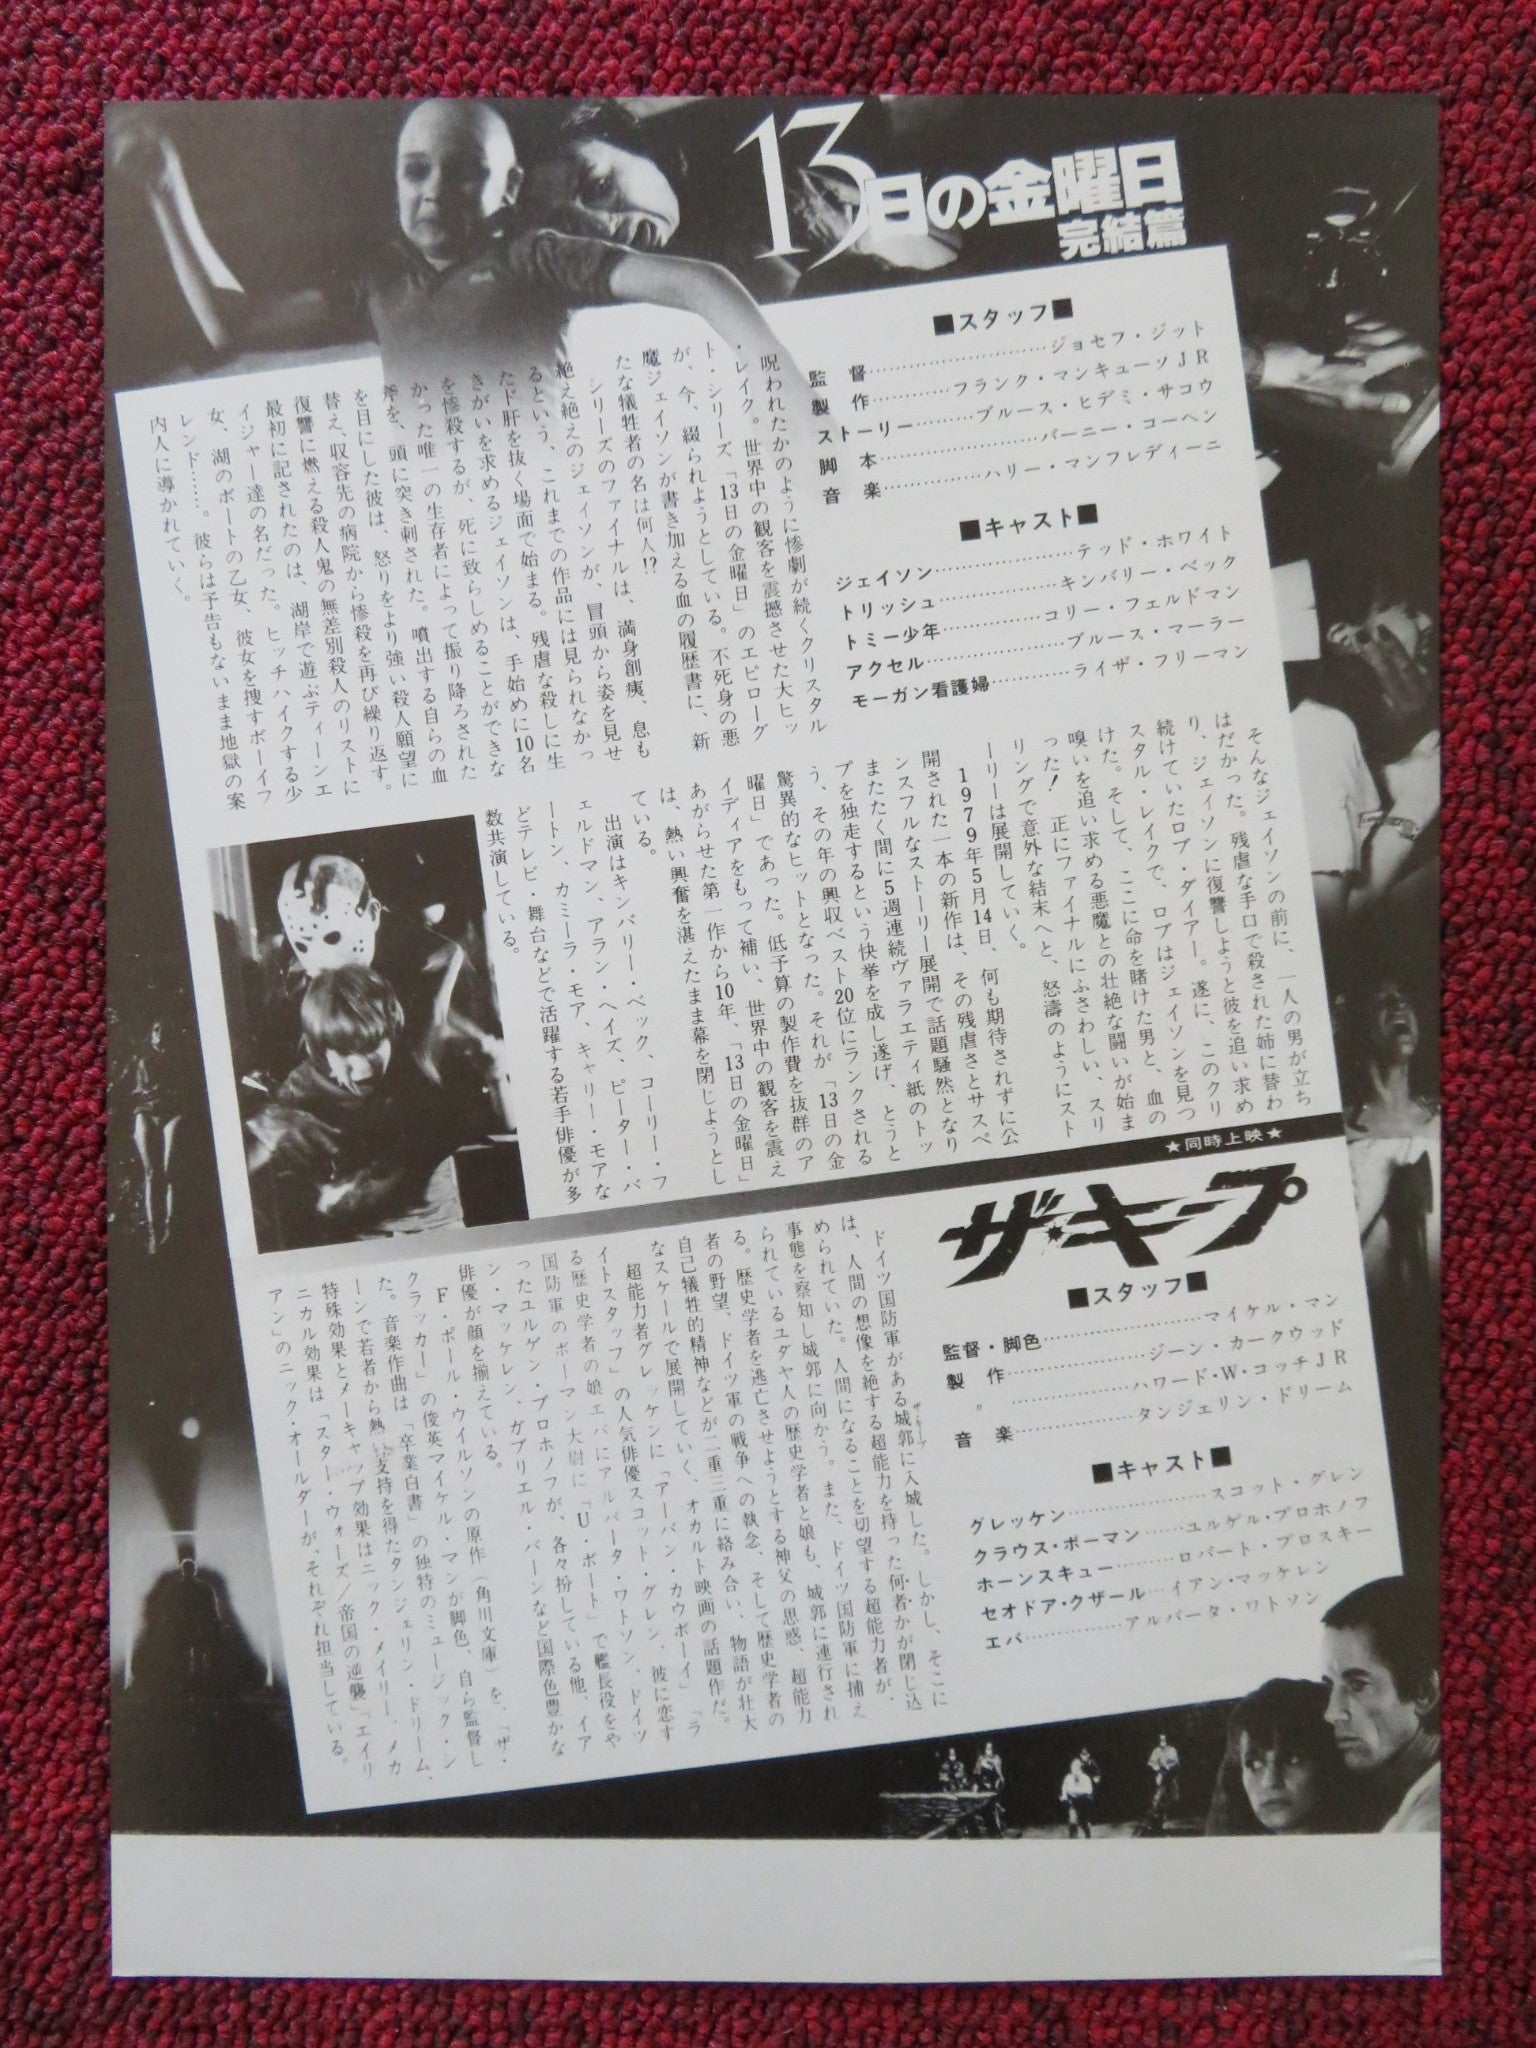 13日の金曜日
完結篇
■スタッフ■
監督…………………ジョセフ・ジット
製作…………フランク・マンキューソJR
ストーリー………ブルース・ヒデミ・サコウ
脚本…………………バーニー・コーヘン
音楽……………ハリー・マンフレディーニ
■キャスト■
ジェイソン………………テッド・ホワイト
トリッシュ……………キンバリー・ベック
トミー少年…………コリー・フェルドマン
アクセル………………ブルース・マーラー
モーガン看護婦…………ライザ・フリーマン
呪われたかのように惨劇が続くクリスタル
・レイク。世界中の観客を震撼させた大ヒッ
ト・シリーズ「13日の金曜日」のエピローグ
が、今、綴られようとしている。不死身の悪
魔ジェイソンが書き加える血の履歴書に、新
たな犠牲者の名は何人!?
シリーズのファイナルは、満身創痍、息も
絶え絶えのジェイソンが、冒頭から姿を見せ
るという、これまでの作品には見られなかっ
たド肝を抜く場面で始まる。残虐な殺しに生
きがいを求めるジェイソンは、手始めに10名
を惨殺するが、死に致らしめることができな
かった唯一の生存者によって振り降ろされた
斧を、頭に突き刺された。噴出する自らの血
を目にした彼は、怒りをより強い殺人願望に
替え、収容先の病院から惨殺を再び繰り返す。
復讐に燃える殺人鬼の無差別殺人のリストに
最初に記されたのは、湖岸で遊ぶティーンエ
イジャー達の名だった。ヒッチハイクする少
女、湖のボートの乙女、彼女を捜すボーイフ
レンド……。彼らは予告もないまま地獄の案
内人に導かれていく。
そんなジェイソンの前に、一人の男が立ち
はだかった。残虐な手口で殺された姉に替わ
り、ジェイソンに復讐しようと彼を追い求め
続けていたロブ・ダイアー。遂に、このクリ
スタル・レイクで、ロブはジェイソンを見つ
けた。そして、ここに命を賭けた男と、血の
嗅いを追い求める悪魔との壮絶な闘いが始ま
った！ 正にファイナルにふさわしい、スリ
リングで意外な結末へと、怒濤のようにスト
ーリーは展開していく。
1979年5月14日、何も期待されずに公
開された一本の新作は、その残虐さとサスペ
ンスフルなストーリー展開で話題騒然となり
またたく間に5週連続ヴァラエティ紙のトッ
プを独走するという快挙を成し遂げ、とうと
う、その年の興収ベスト20位にランクされる
驚異的なヒットとなった。それが「13日の金
曜日」であった。低予算の製作費を抜群のア
イディアをもって補い、世界中の観客を震え
あがらせた第一作から10年、「13日の金曜日」
は、熱い興奮を湛えたまま幕を閉じようとし
ている。
出演はキンバリー・ベック、コーリー・フ
ェルドマン、アラン・ヘイズ、ピーター・バ
ートン、カミーラ・モア、キャリー・モアな
どテレビ・舞台などで活躍する若手俳優が多
数共演している。
★同時上映★
ザ・キープ
■スタッフ■
監督・脚色……………………マイケル・マン
製作…………………ジーン・カークウッド
〃……………ハワード・W・コッチJR
音楽………………タンジェリン・ドリーム
■キャスト■
グレッケン…………………スコット・グレン
クラウス・ボーマン……ユルゲル・プロホノフ
ホーンスキュー………ロバート・プロスキー
セオドア・クザール…イアン・マッケレン
エバ……………アルバータ・ワトソン
ドイツ国防軍がある城郭に入城した。しかし、そこに
ザ・キープ
は、人間の想像を絶する超能力を持った何者かが閉じ込
められていた。人間になることを切望する超能力者が、
事態を察知し城郭に向かう。また、ドイツ国防軍に捕え
られているユダヤ人の歴史学者と娘も、城郭に連行され
る。歴史学者を逃亡させようとする神父の思惑、超能力
者の野望、ドイツ軍の戦争への執念、そして歴史学者の
自己犠牲的精神などが二重三重に絡み合い、物語が壮大
なスケールで展開していく、オカルト映画の話題作だ。
超能力者グレッケンに「アーバン・カウボーイ」「ラ
イトスタッフ」の人気俳優スコット・グレン、彼に恋す
る歴史学者の娘エバにアルバータ・ワトソン、ドイツ
国防軍のボーマン大尉に「U・ボート」で艦長役をや
ったユルゲン・プロホノフが、各々扮している他、イア
ン・マッケレン、ガブリエル・バーンなど国際色豊かな
俳優が顔を揃えている。
F・ポール・ウイルソンの原作（角川文庫）を、「ザ・
クラッカー」の俊英マイケル・マンが脚色、自ら監督し
た。音楽作曲は「卒業白書」の独特のミュージック・シ
ーンで若者から熱い支持を得たタンジェリン・ドリーム、
特殊効果とメーキャップ効果はニック・メイリー、メカ
ニカル効果は「スター・ウォーズ／帝国の逆襲」「エイリ
アン」のニック・オールダーが、それぞれ担当している。